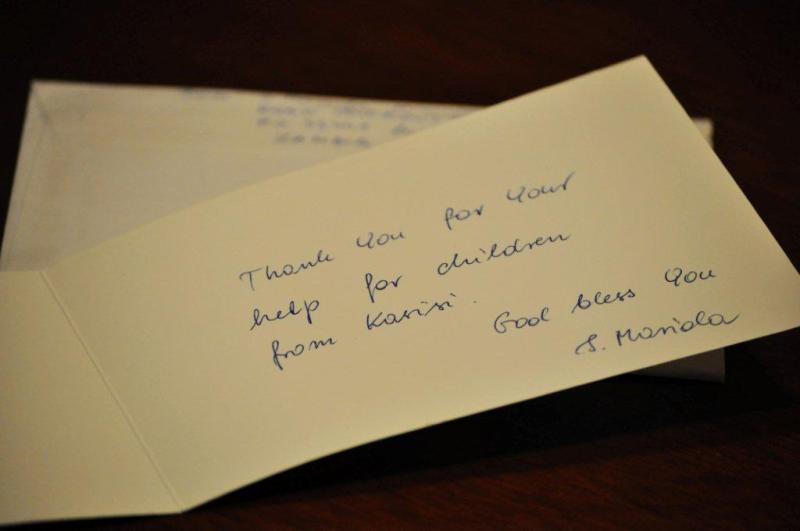 Thank you for your
help for children
from Kasisi.
God bless you
S. Mariola